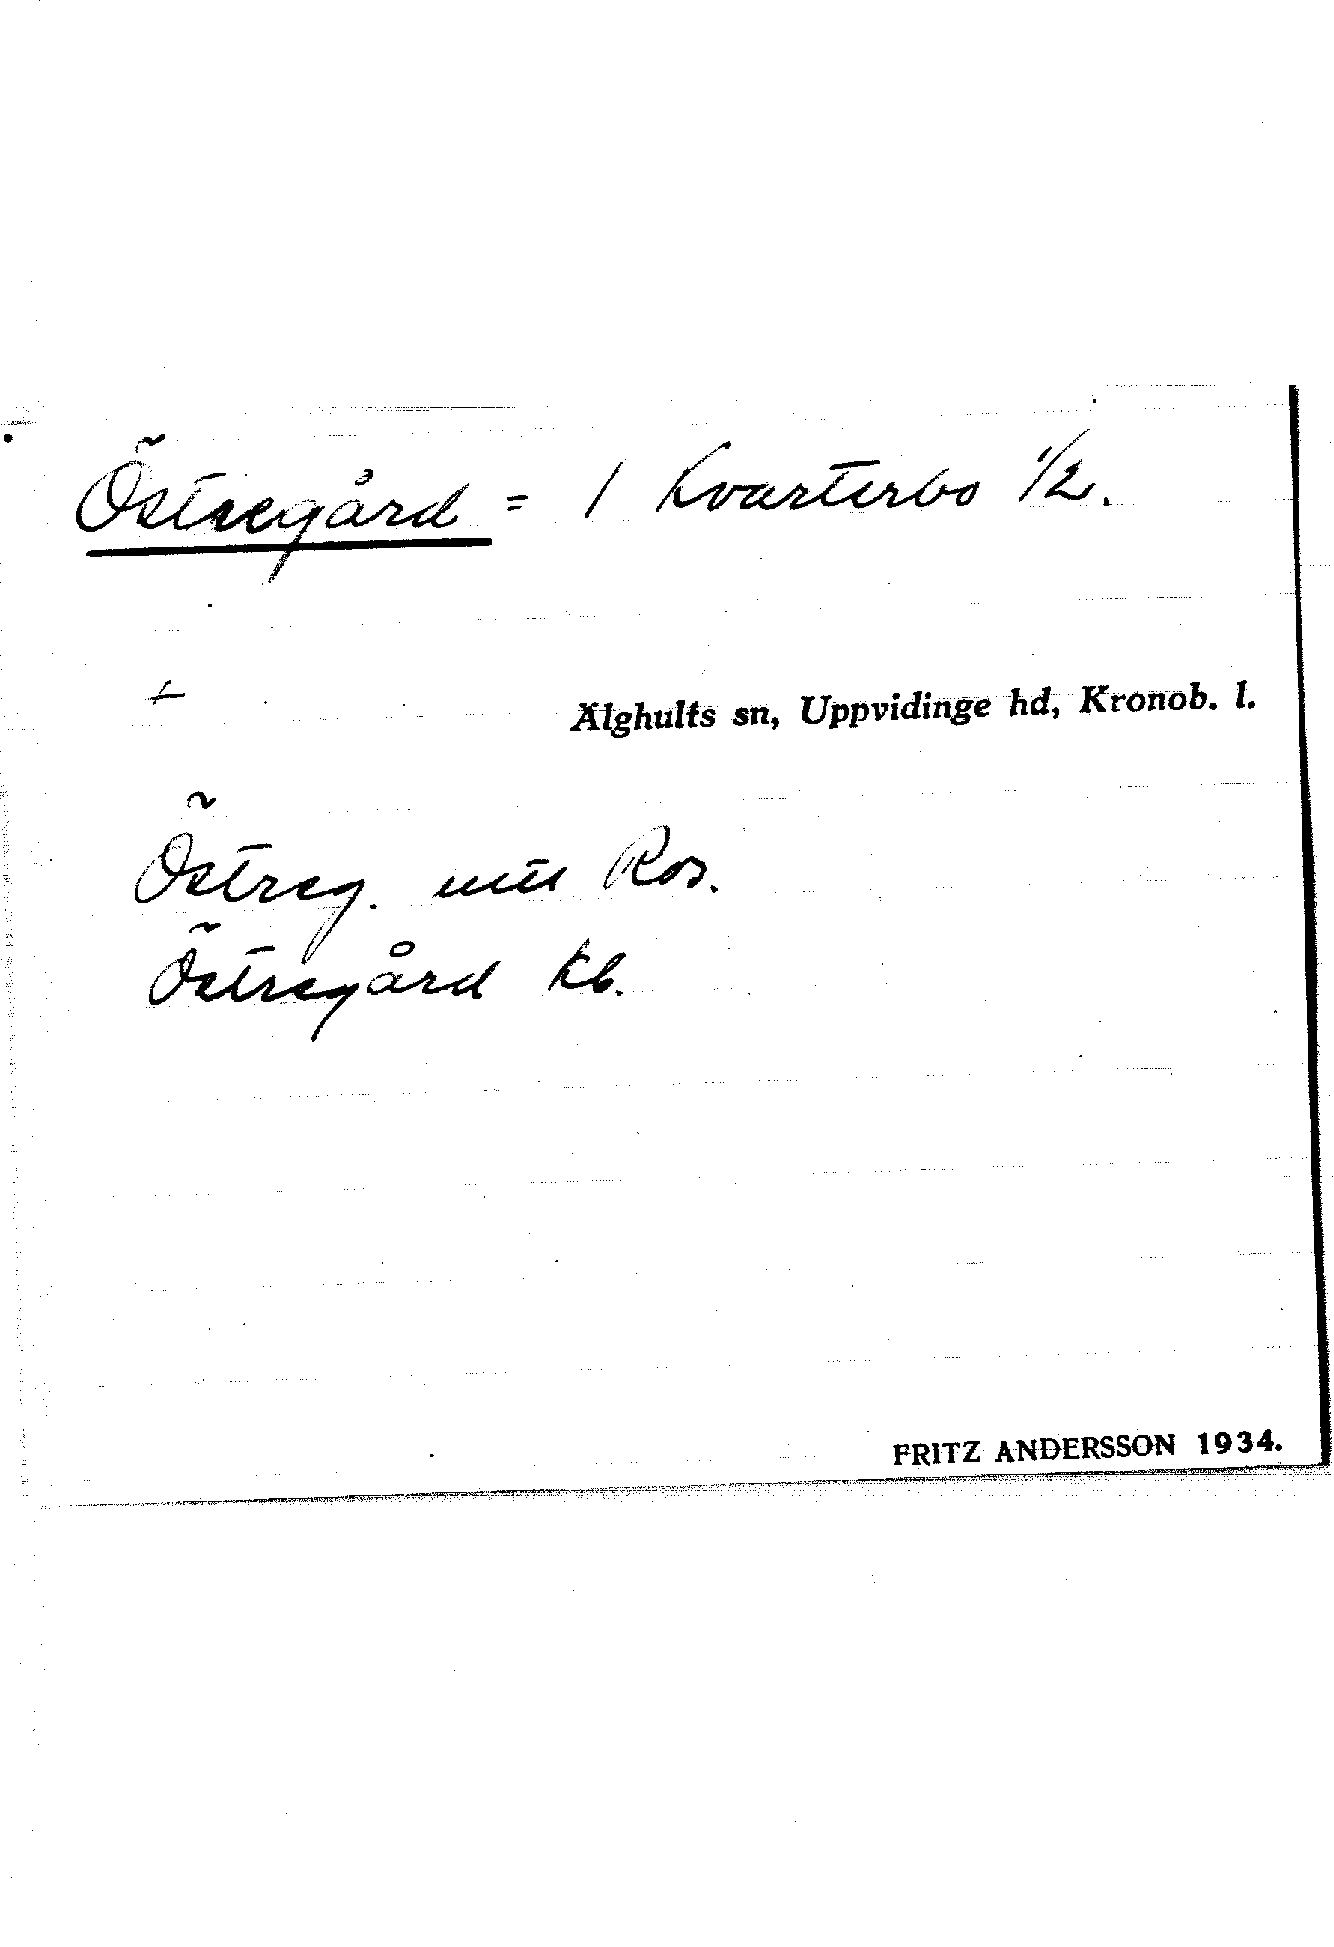 Östregård = 1 Kvarterbo 1/2.
+
Älghults sn, Uppvidinge hd, Kronob. l.
Östreg. utn Ros.
Östregård kb.
FRITZ ANDERSSON 1934.